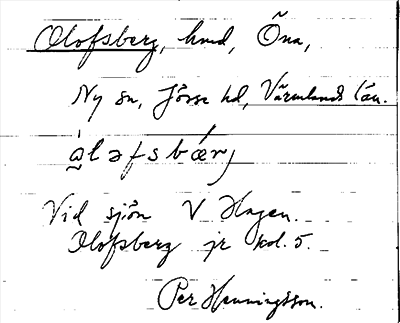 Olofsberg, hmd, Öna,
Ny sn, Jösse hd, Värmlands län.
 å̀ləfsbær̨j
Vid sjön V Hagen.
Olofsberg jr kol. 5.
Per Henningsson.